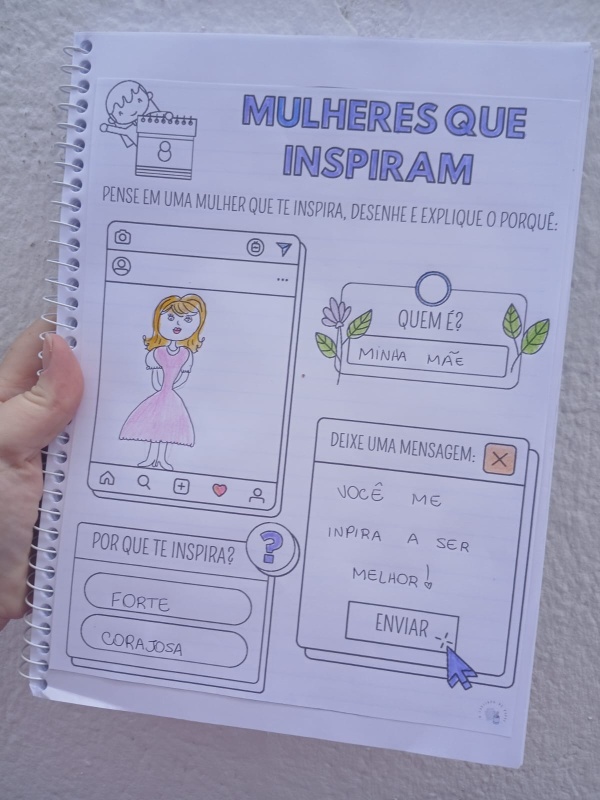 8
MULHERES QUE
INSPIRAM
PENSE EM UMA MULHER QUE TE INSPIRA, DESENHE E EXPLIQUE O PORQUÊ:
QUEM É?
MINHA MÃE
DEIXE UMA MENSAGEM:
VOCÊ ME
INPIRA A SER
MELHOR!
ENVIAR
POR QUE TE INSPIRA?
?
FORTE
CORAJOSA